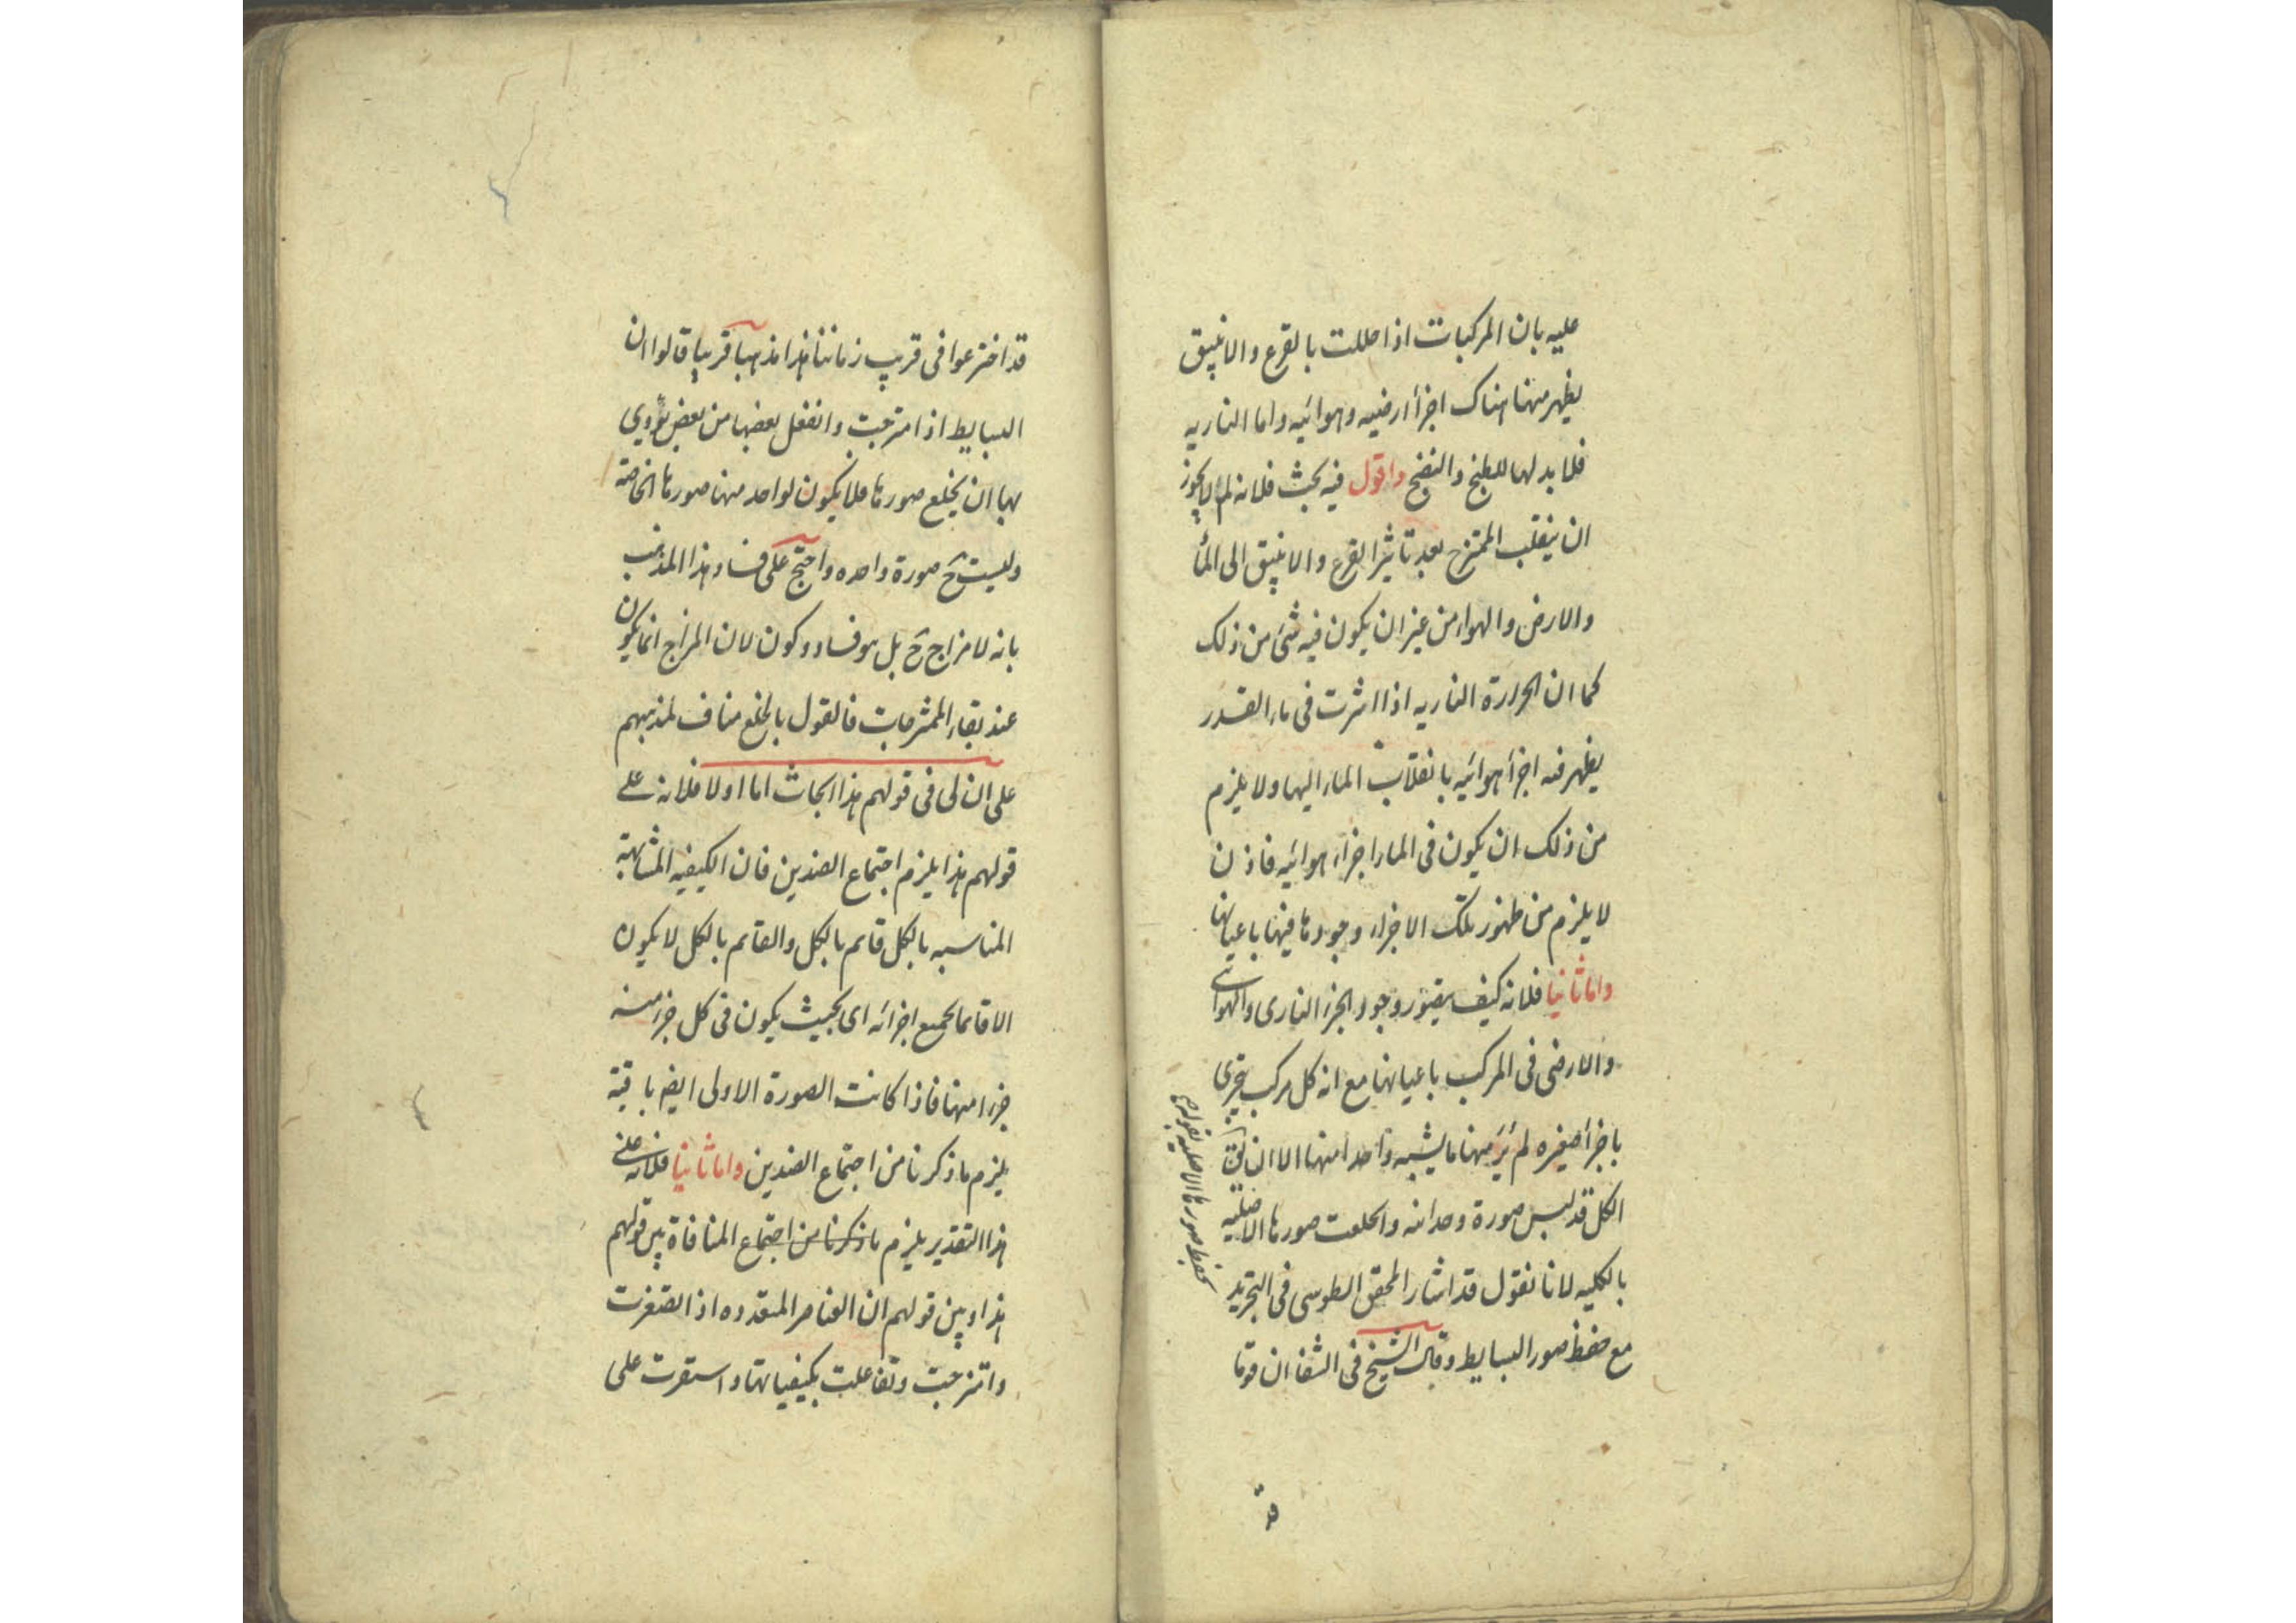 عليه بان المركبات اذا حللت بالقرع والانبيق
يظهر منها هناك اجزأ ارضيه وهوائيه واما الناريه
فلا بد لها للطبخ والنضج واقول فيه بحث فلانه لم لا يجوز
ان ينقلب الممتزج بعد تاثير القرع والانبيق الى المأ
والارض والهواء من غير ان يكون فيه شئ من ذلك
كما ان الحرارة الناريه اذا اثرت فى ماء القدر
يظهر منه اجزأ هوائيه بانقلاب الماء اليها ولا يلزم
من ذلك ان يكون فى الماء اجزاء هوائيه فاذن
لا يلزم من ظهور تلك الاجزاء وجودها فيها باعيانها
واما ثانيا فلانه كيف يتصور وجود الجزء النارى والهوائى
والارضى فى المركب باعيانها مع انه كل مركب يتجزى
باجزأ صغيره لم ير منها ما يشبه واحدا منها الا ان يق
الكل قد لبس صورة وحدانيه وانخلعت صورها الاصليه
بالكليه لانا نقول قد اشار المحقق الطوسى فى التجريد
مع حفظ صور البسايط وقال الشيخ فى الشفا ان قوما
بحفظ صورها الاصليه
قد
قد اخترعوا فى قريب زماننا هذا مذهبا قريبا قالوا ان
البسايط اذا امتزجت وانفعل بعضها من بعض يؤدي
بها ان يخلع صورها فلا يكون لواحد منها صورها الخاصة
وليست ح صورة واحده واحتج على فساد هذا المذهب
بانه لا مزاج ح بل هو فساد وكون لان المزاج انما يكون
عند بقاء الممتزجات فالقول بالخلع مناف لمذهبهم
على ان لى فى قولهم هذا ابحاث اما اولا فلانه على
قولهم هذا يلزم اجتماع الضدين فان الكيفيه المتشابهة
المناسبه بالكل قايم بالكل والقايم بالكل لا يكون
الا قايما بجميع اجزائه اى بحيث يكون فى كل جزء منه
جزء منها فاذا كانت الصورة الاولى ايضا باقية
يلزم ما ذكرنا من اجتماع الضدين واما ثانيا فلانه على
هذا التقدير يلزم ما ذكرنا من اجتماع المنافاة بين قولهم
هذا وبين قولهم ان العناصر المتعدده اذا تصغرت
وامتزجت وتفاعلت بكيفياتها واستقرت على